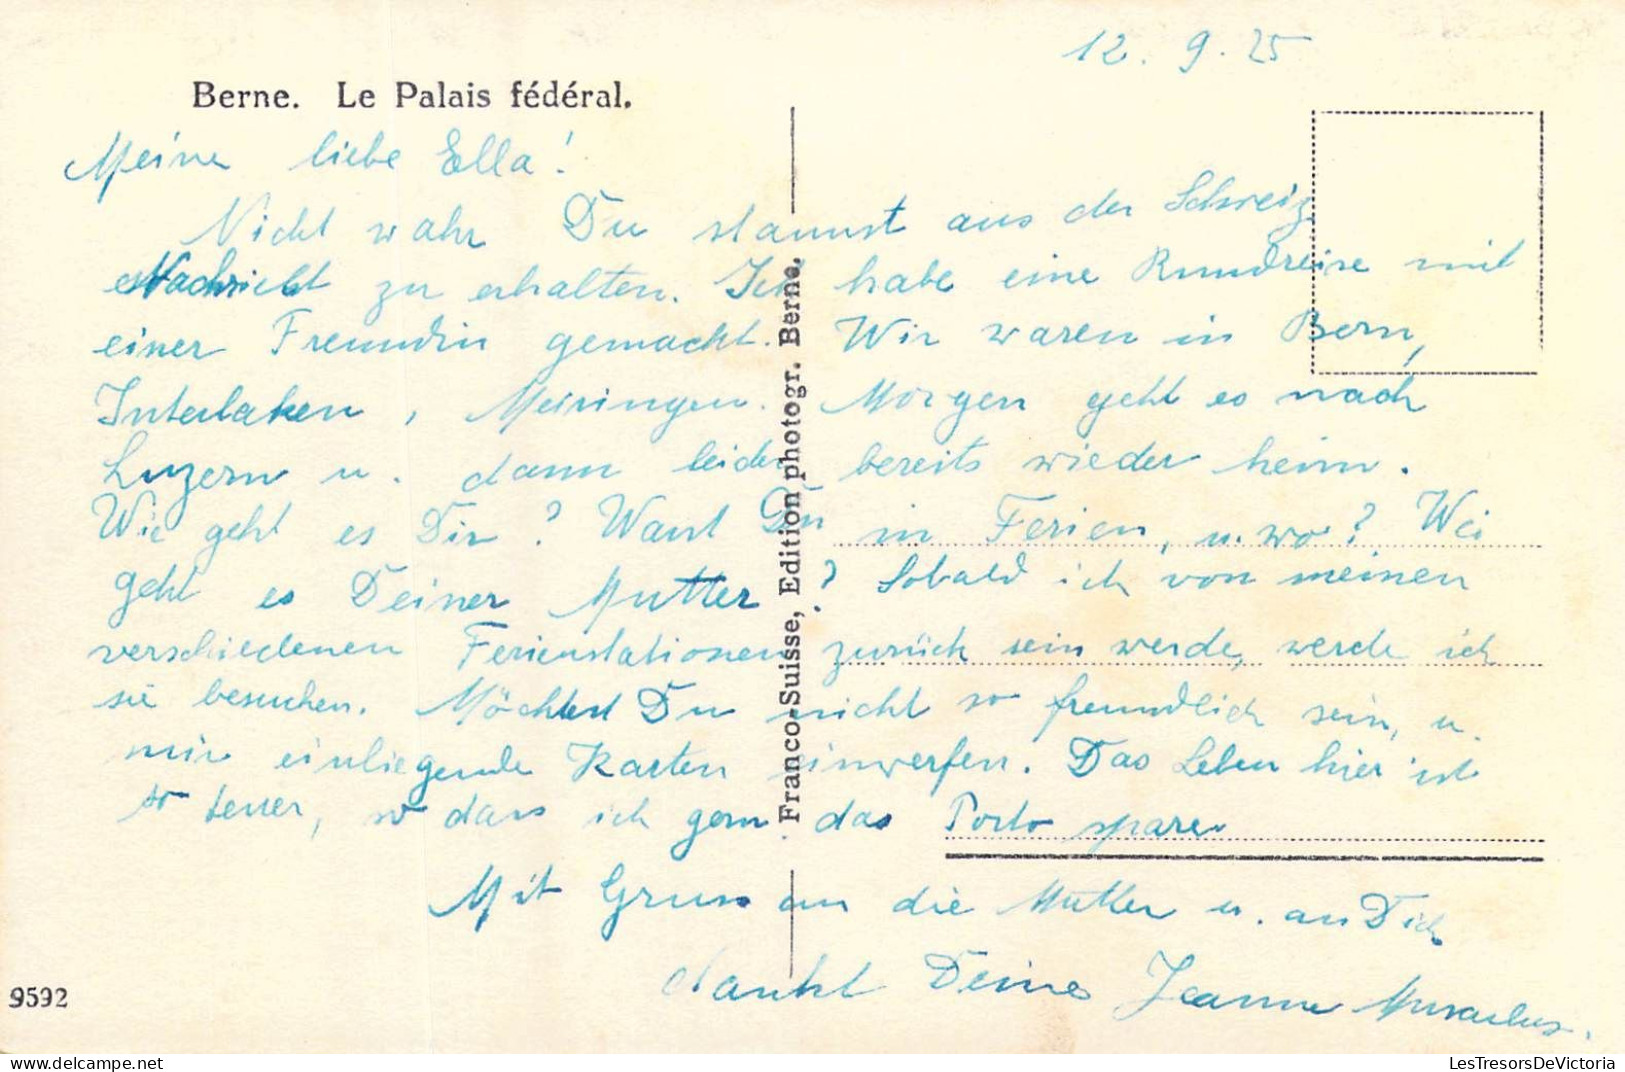 12. 9. 25
Berne. Le Palais fédéral.
Meine liebe Ella!
Nicht wahr Du staunst aus der Schweiz
Nachricht zu erhalten. Ich habe eine Rundreise mit
einer Freundin gemacht. Wir waren in Bern,
Interlaken, Meiringen. Morgen geht es nach
Luzern u. dann leider bereits wieder heim.
Wie geht es Dir? Warst Du in Ferien, u. wo? Wie
geht es Deiner Mutter? Sobald ich von meinen
verschiedenen Ferienstationen zurück sein werde, werde ich
sie besuchen. Möchtest Du nicht so freundlich sein, u.
mir einliegende Karten einwerfen. Das Leben hier ist
so teuer, so dass ich gern das Porto spare.
Mit Gruss an die Mutter u. an Dich
dankt Deine Jeanne
Franco-Suisse, Edition photogr. Berne.
9592
LesTresorsDeVictoria